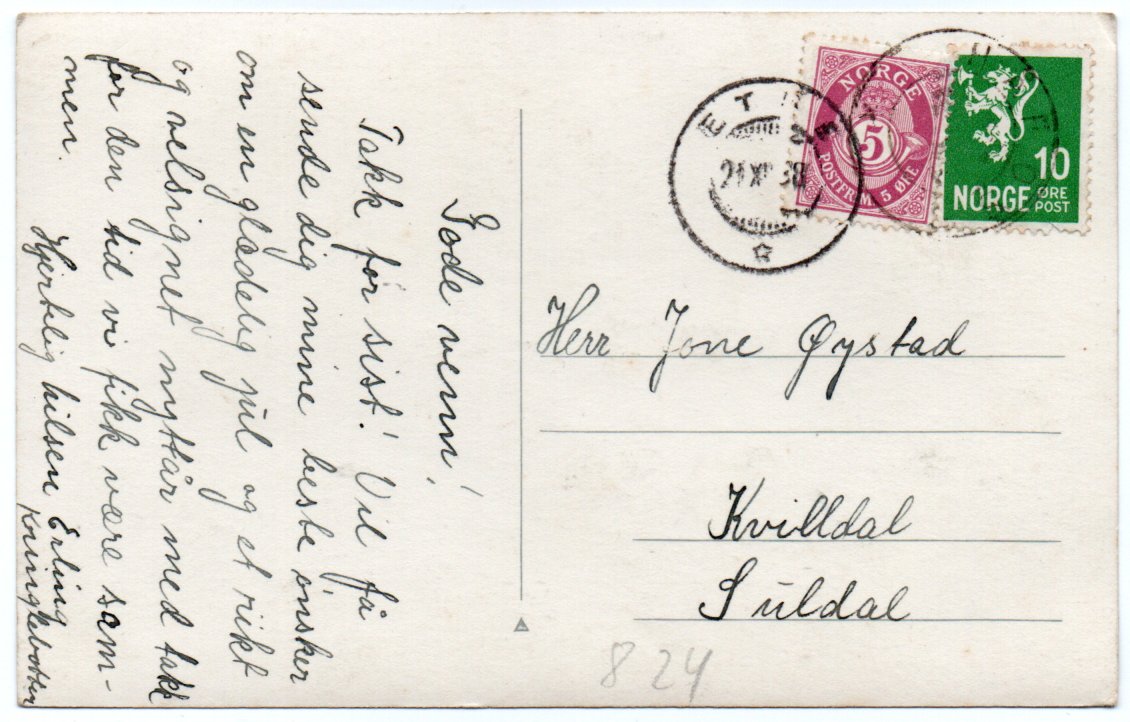 Gode venn!
Takk for sist! Vil få
sende dig mine beste ønsker
om en glædelig jul og et rikt
og velsignet nyttår med takk
for den tid vi fikk være sam-
men.
Hjertelig hilsen Erling
ETNE
21 XII 38
NORGE
5
POSTFRIM. 5 ØRE
10
NORGE ØRE
POST
Herr Jone Øystad
Kvilldal
Suldal
824